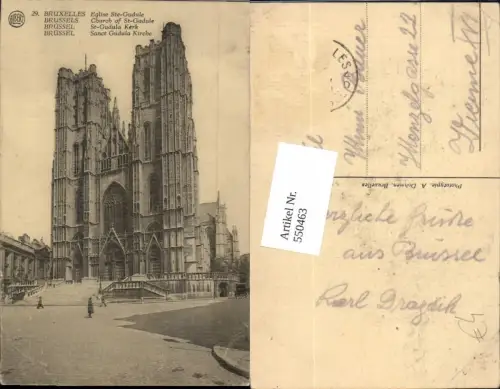 29. BRUXELLES Eglise Ste-Gudule
BRUSSELS Church of St-Gudule
BRUSSEL St-Gudula Kerk
BRÜSSEL Sanct Gudula Kirche
LES
Wenzelgasse 22
Artikel Nr.
550463
Phototypie A. Dohmen, Bruxelles
rzliche Grüsse
aus Brüssel
Karl